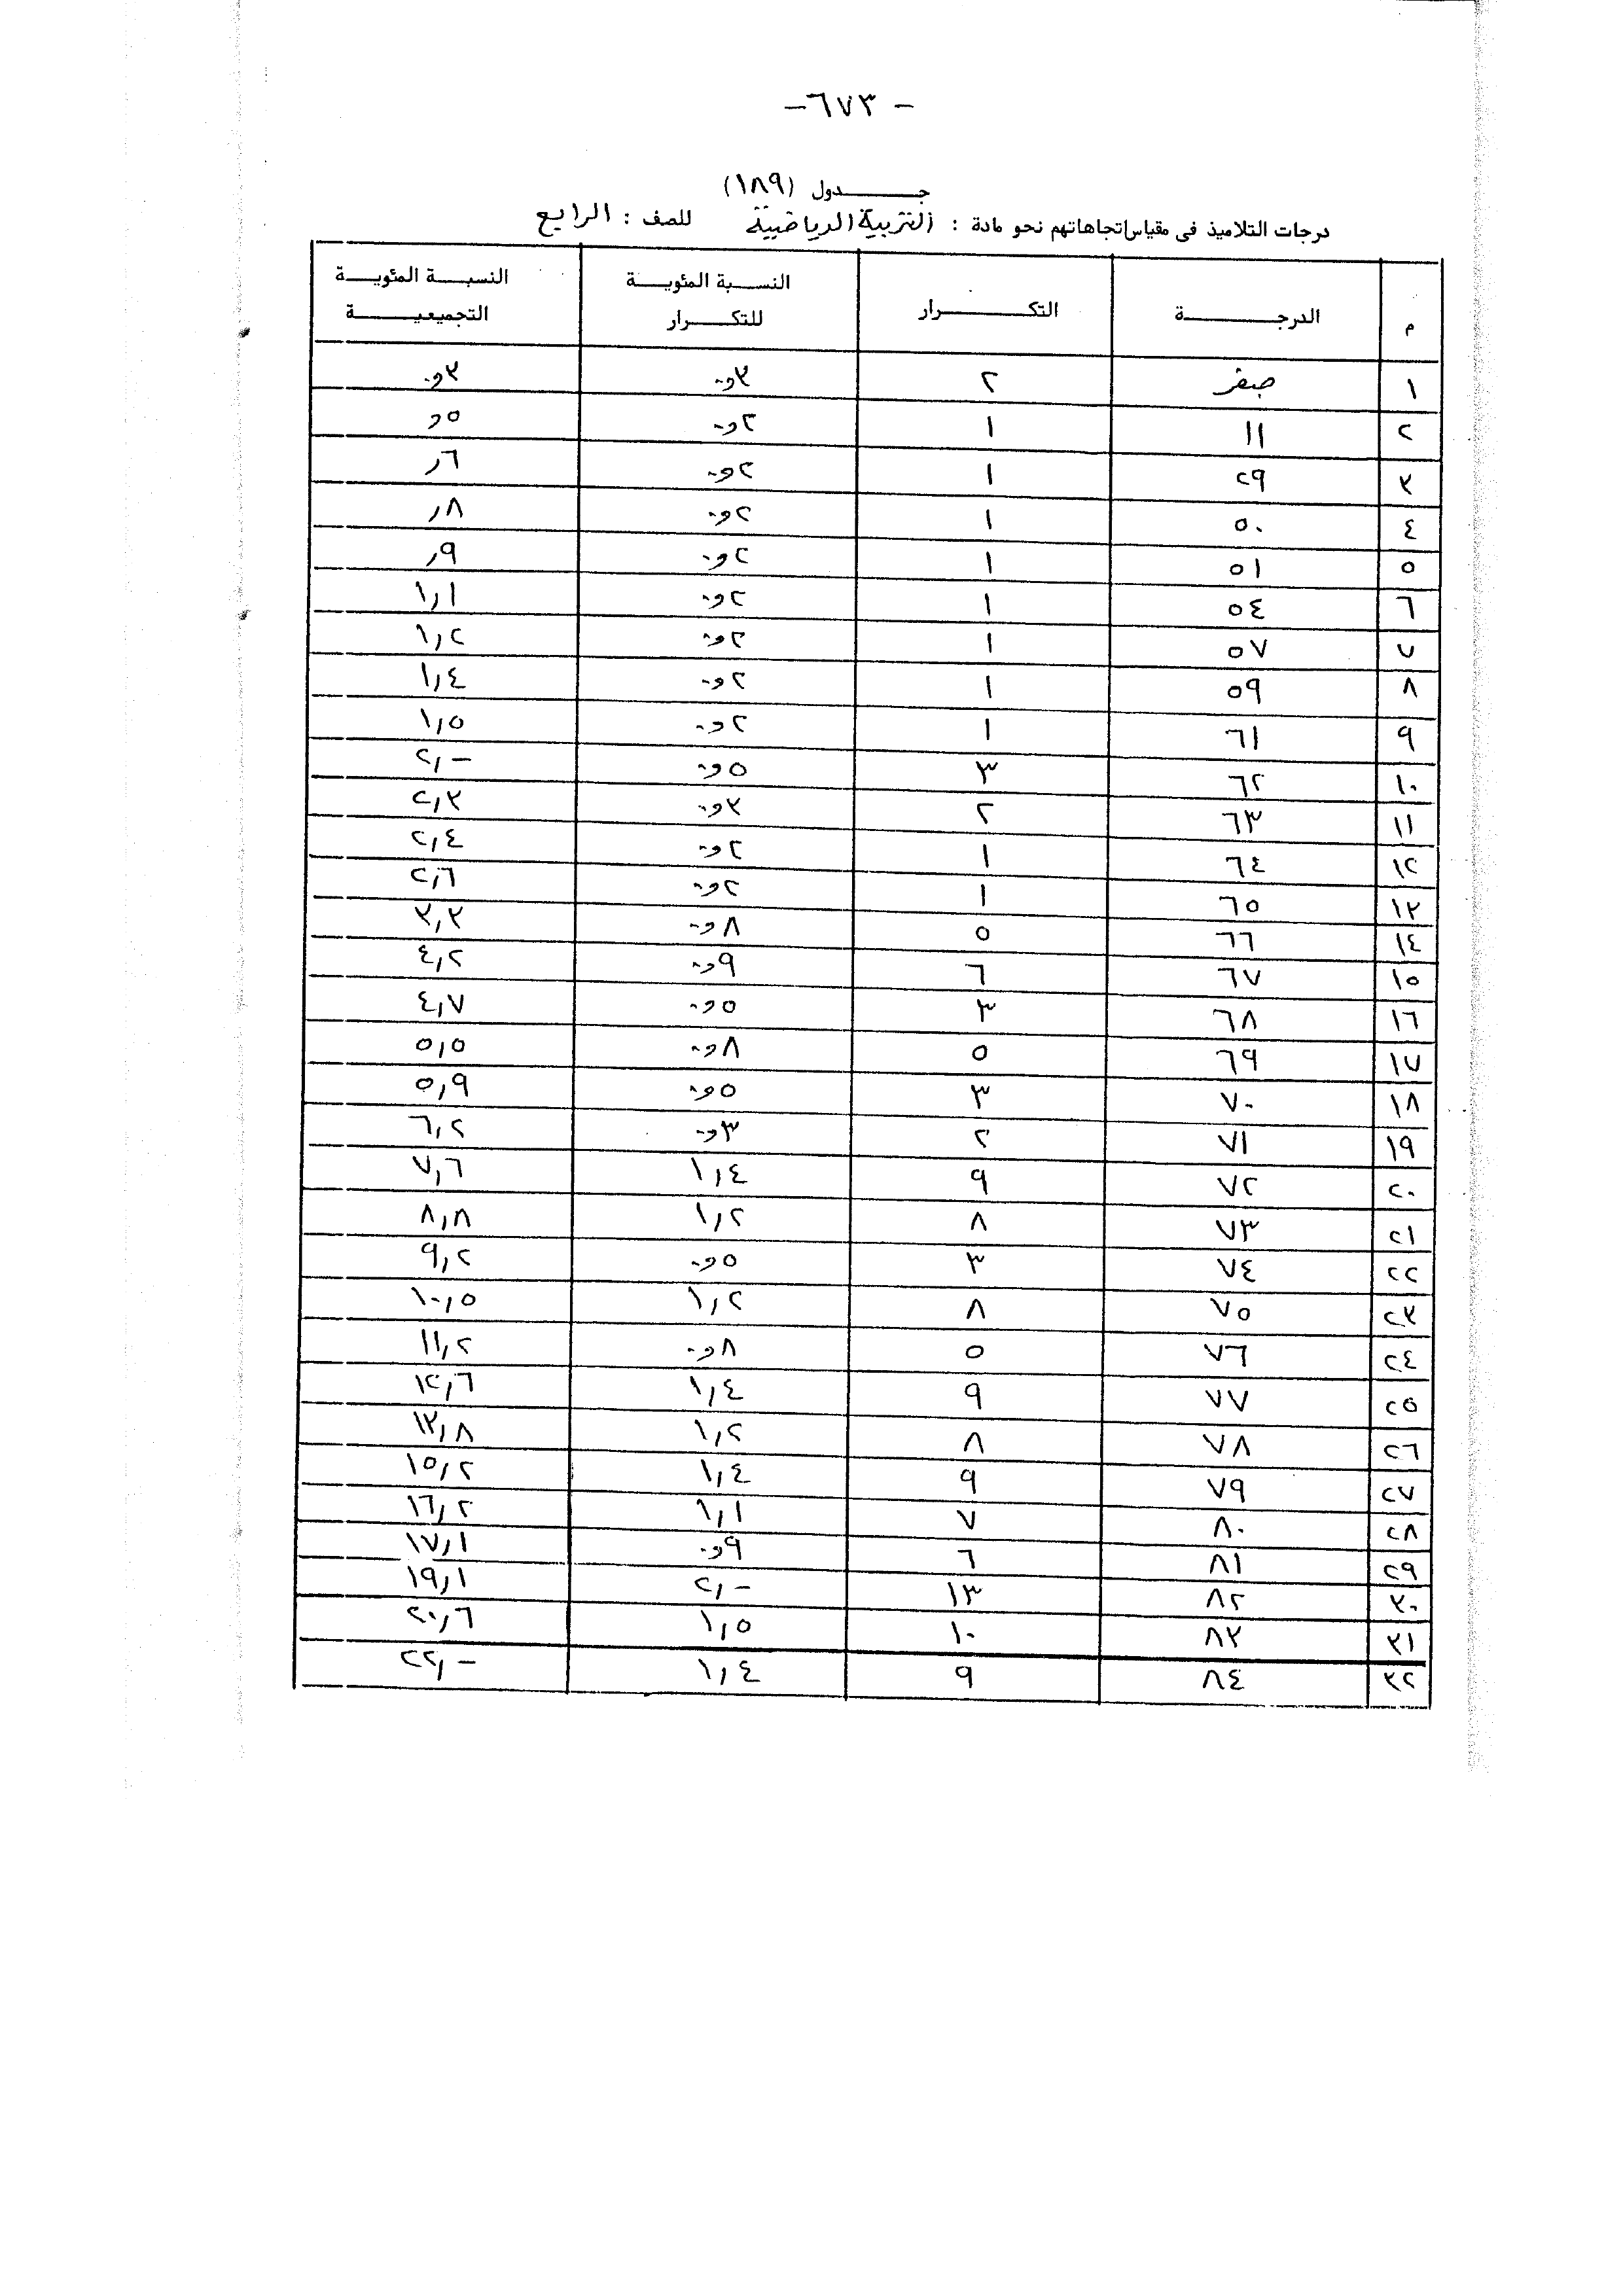 -٦٧٣ -
جـــدول (١٨٩)
درجات التلاميذ فى مقياس اتجاهاتهم نحو مادة : التربية الرياضية للصف : الرابع
م الدرجـــة التكـــرار النسبة المئوية للتكـــرار النسبة المئوية التجميعية
١ صفر ٢ ٣و٠ ٣و٠
٢ ١١ ١ ٢و٠ ٥و
٣ ٢٩ ١ ٢و٠ ٦ر
٤ ٥٠ ١ ٢و٠ ٨ر
٥ ٥١ ١ ٢و٠ ٩ر
٦ ٥٤ ١ ٢و٠ ١ر١
٧ ٥٧ ١ ٢و٠ ١ر٢
٨ ٥٩ ١ ٢و٠ ١ر٤
٩ ٦١ ١ ٢و٠ ١ر٥
١٠ ٦٢ ٣ ٥و٠ ٢ر-
١١ ٦٣ ٢ ٣و٠ ٢ر٣
١٢ ٦٤ ١ ٢و٠ ٢ر٤
١٣ ٦٥ ١ ٢و٠ ٢ر٦
١٤ ٦٦ ٥ ٨و٠ ٣ر٣
١٥ ٦٧ ٦ ٩و٠ ٤ر٢
١٦ ٦٨ ٣ ٥و٠ ٤ر٧
١٧ ٦٩ ٥ ٨و٠ ٥ر٥
١٨ ٧٠ ٣ ٥و٠ ٥ر٩
١٩ ٧١ ٢ ٣و٠ ٦ر٢
٢٠ ٧٢ ٩ ١ر٤ ٧ر٦
٢١ ٧٣ ٨ ١ر٢ ٨ر٨
٢٢ ٧٤ ٣ ٥و٠ ٩ر٢
٢٣ ٧٥ ٨ ١ر٢ ١٠ر٥
٢٤ ٧٦ ٥ ٨و٠ ١١ر٢
٢٥ ٧٧ ٩ ١ر٤ ١٢ر٦
٢٦ ٧٨ ٨ ١ر٢ ١٣ر٨
٢٧ ٧٩ ٩ ١ر٤ ١٥ر٢
٢٨ ٨٠ ٧ ١ر١ ١٦ر٢
٢٩ ٨١ ٦ ٩و٠ ١٧ر١
٣٠ ٨٢ ١٣ ٢ر- ١٩ر١
٣١ ٨٣ ١٠ ١ر٥ ٢٠ر٦
٣٢ ٨٤ ٩ ١ر٤ ٢٢ر-